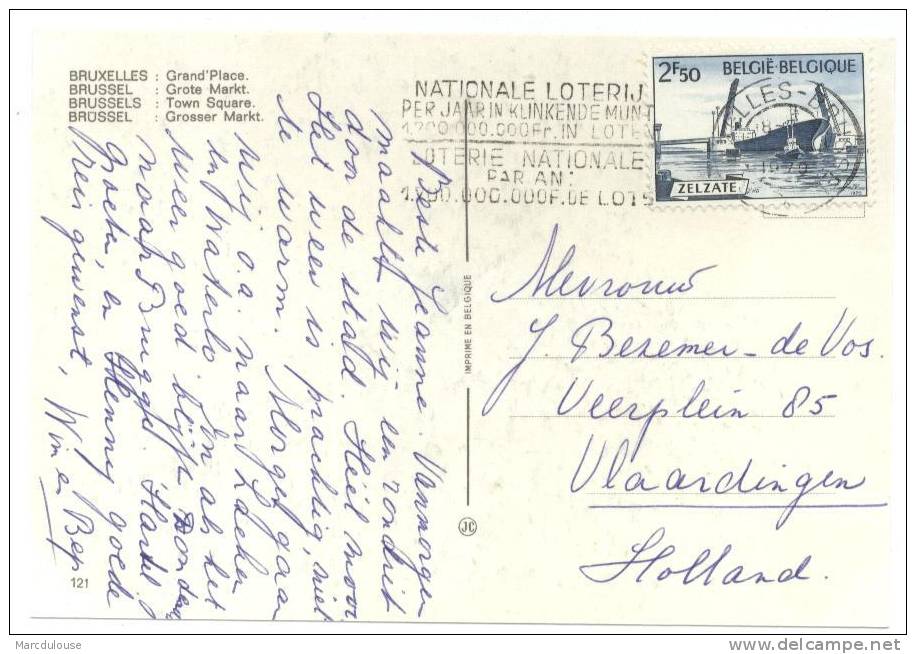 BRUXELLES : Grand'Place.
BRUSSEL : Grote Markt.
BRUSSELS : Town Square.
BRÜSSEL : Grosser Markt.
NATIONALE LOTERIJ
PER JAAR IN KLINKENDE MUNT
1.700.000.000Fr. IN LOTEN
LOTERIE NATIONALE
PAR AN :
1.700.000.000F. DE LOTS
2F50 BELGIË-BELGIQUE
ZELZATE
Beste Jeanne. Vanmorgen
maakte wij een rondrit
door de stad. Heel mooi.
Het weer is prachtig, niet
te warm. Morgen gaan
wij o.a. naar Laeken
en Waterlo. En als het
weer goed blijft Donderdag
naar Brugge. Hartel.
groeten, en Henny goede
reis gewenst, Wim en Bep
IMPRIME EN BELGIQUE
JC
121
Mevrouw
J Bezemer-de Vos.
Veerplein 85
Vlaardingen
Holland.
Marcdulouse
www.delcampe.net